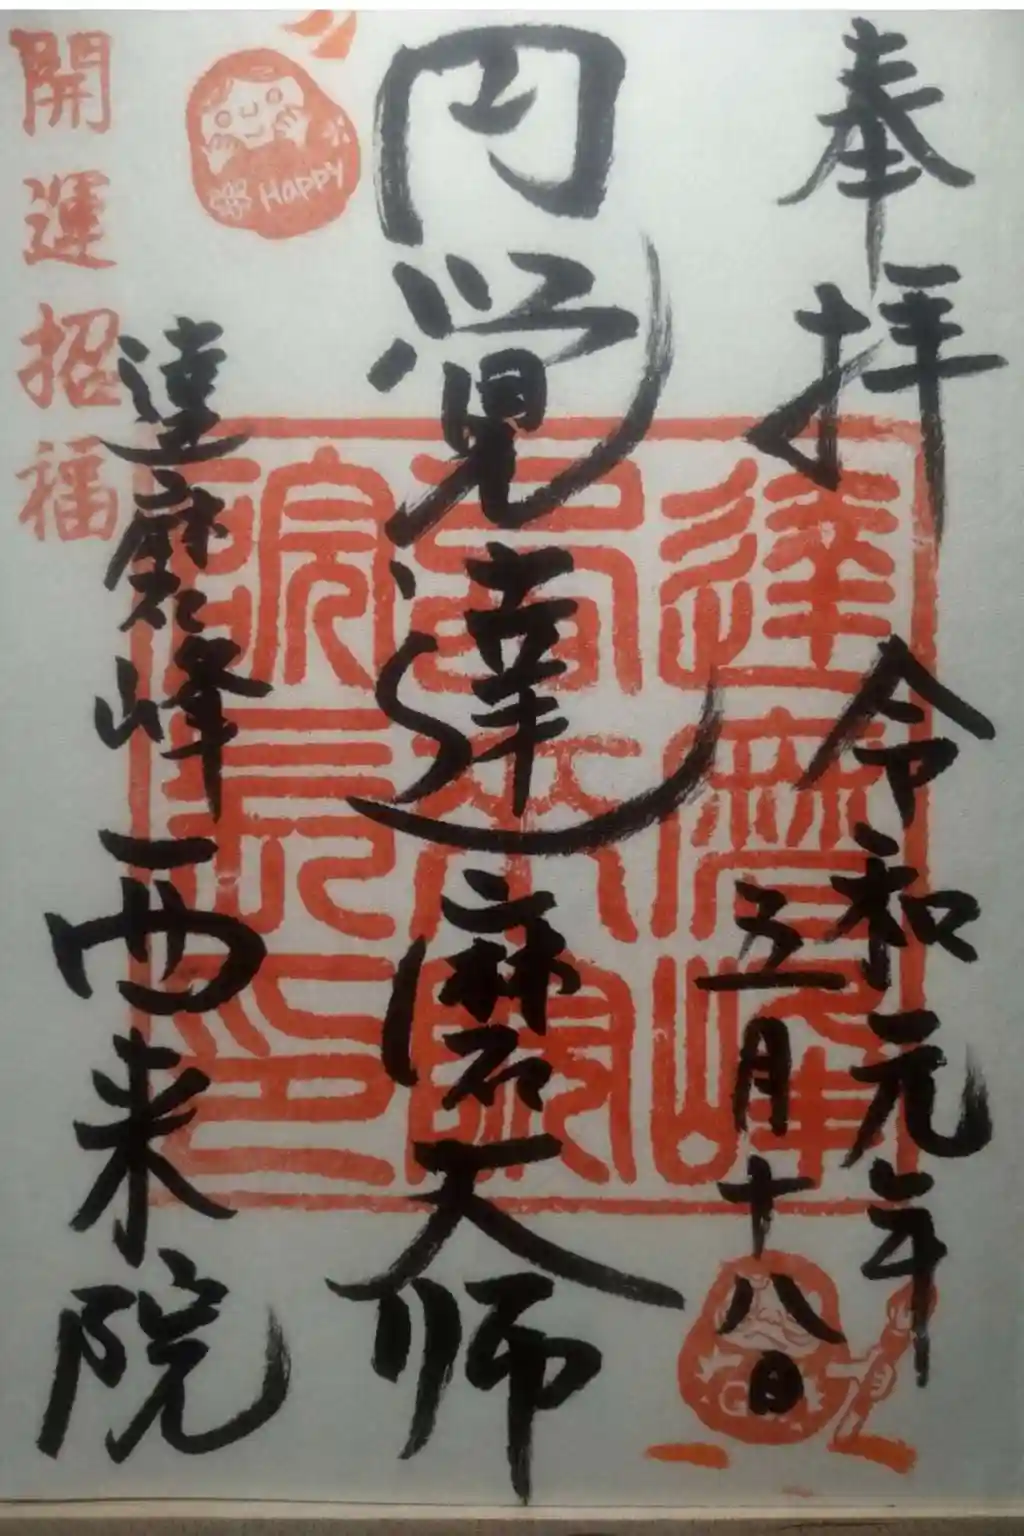 奉拝
令和元年
五月十八日
円覚達磨大師
達磨峰西来院
開運招福
Happy
達磨峰
院長印